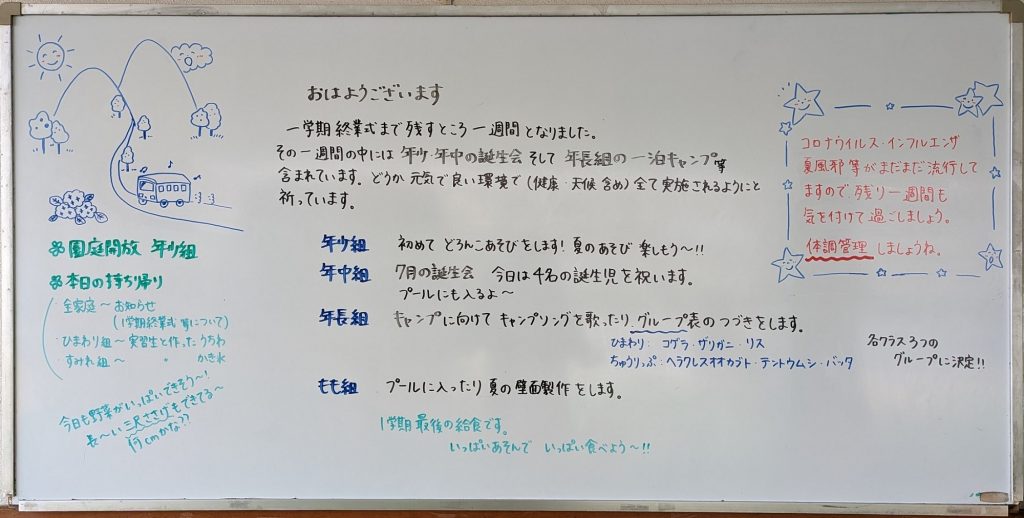 おはようございます
一学期 終業式まで 残すところ 一週間 となりました。
その一週間の中には 年少・年中の誕生会 そして 年長組の 一泊キャンプ等
含まれています。どうか 元気で良い環境で（健康・天候 含め）全て実施されるようにと
祈っています。
年少組 初めて どろんこあそびをします！夏のあそび 楽しもう〜!!
年中組 7月の誕生会 今日は4名の誕生児を祝います。
プールにも入るよ〜
年長組 キャンプに向けて キャンプソングを歌ったり グループ表のつづきをします。
ひまわり： コグラ・ザリガニ・リス
ちゅうりっぷ：ヘラクレスオオカブト・テントウムシ・バッタ
各クラス 3つの
グループに決定!!
もも組 プールに入ったり 夏の壁面製作 をします。
1学期 最後の給食です。
いっぱいあそんで いっぱい食べよう〜!!
園庭開放 年少組
本日の持ち帰り
・全家庭〜お知らせ
（1学期終業式 等について）
・ひまわり組〜実習生と作った うちわ
・すみれ組〜 〃 かき氷
今日も野菜がいっぱいできそう〜！
長〜い 三尺ささげもできてる〜
何cmかな??
コロナウイルス・インフルエンザ
夏風邪 等がまだまだ流行して
ますので 残り一週間も
気を付けて 過ごしましょう。
体調管理 しましょうね。